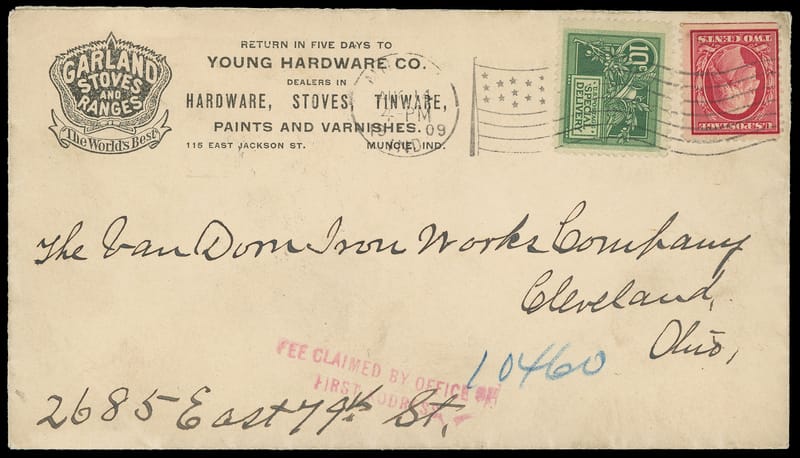 GARLAND
STOVES
AND
RANGES
The World's Best
RETURN IN FIVE DAYS TO
YOUNG HARDWARE CO.
DEALERS IN
HARDWARE, STOVES, TINWARE,
PAINTS AND VARNISHES.
115 EAST JACKSON ST. MUNCIE, IND.
4-PM
09
IND.
10¢
U.S. SPECIAL
DELIVERY
U.S. POSTAGE
TWO CENTS
The Van Dorn Iron Works Company
Cleveland,
Ohio,
10460
FEE CLAIMED BY OFFICE OF
FIRST ADDRESS
2685 East 79th St.